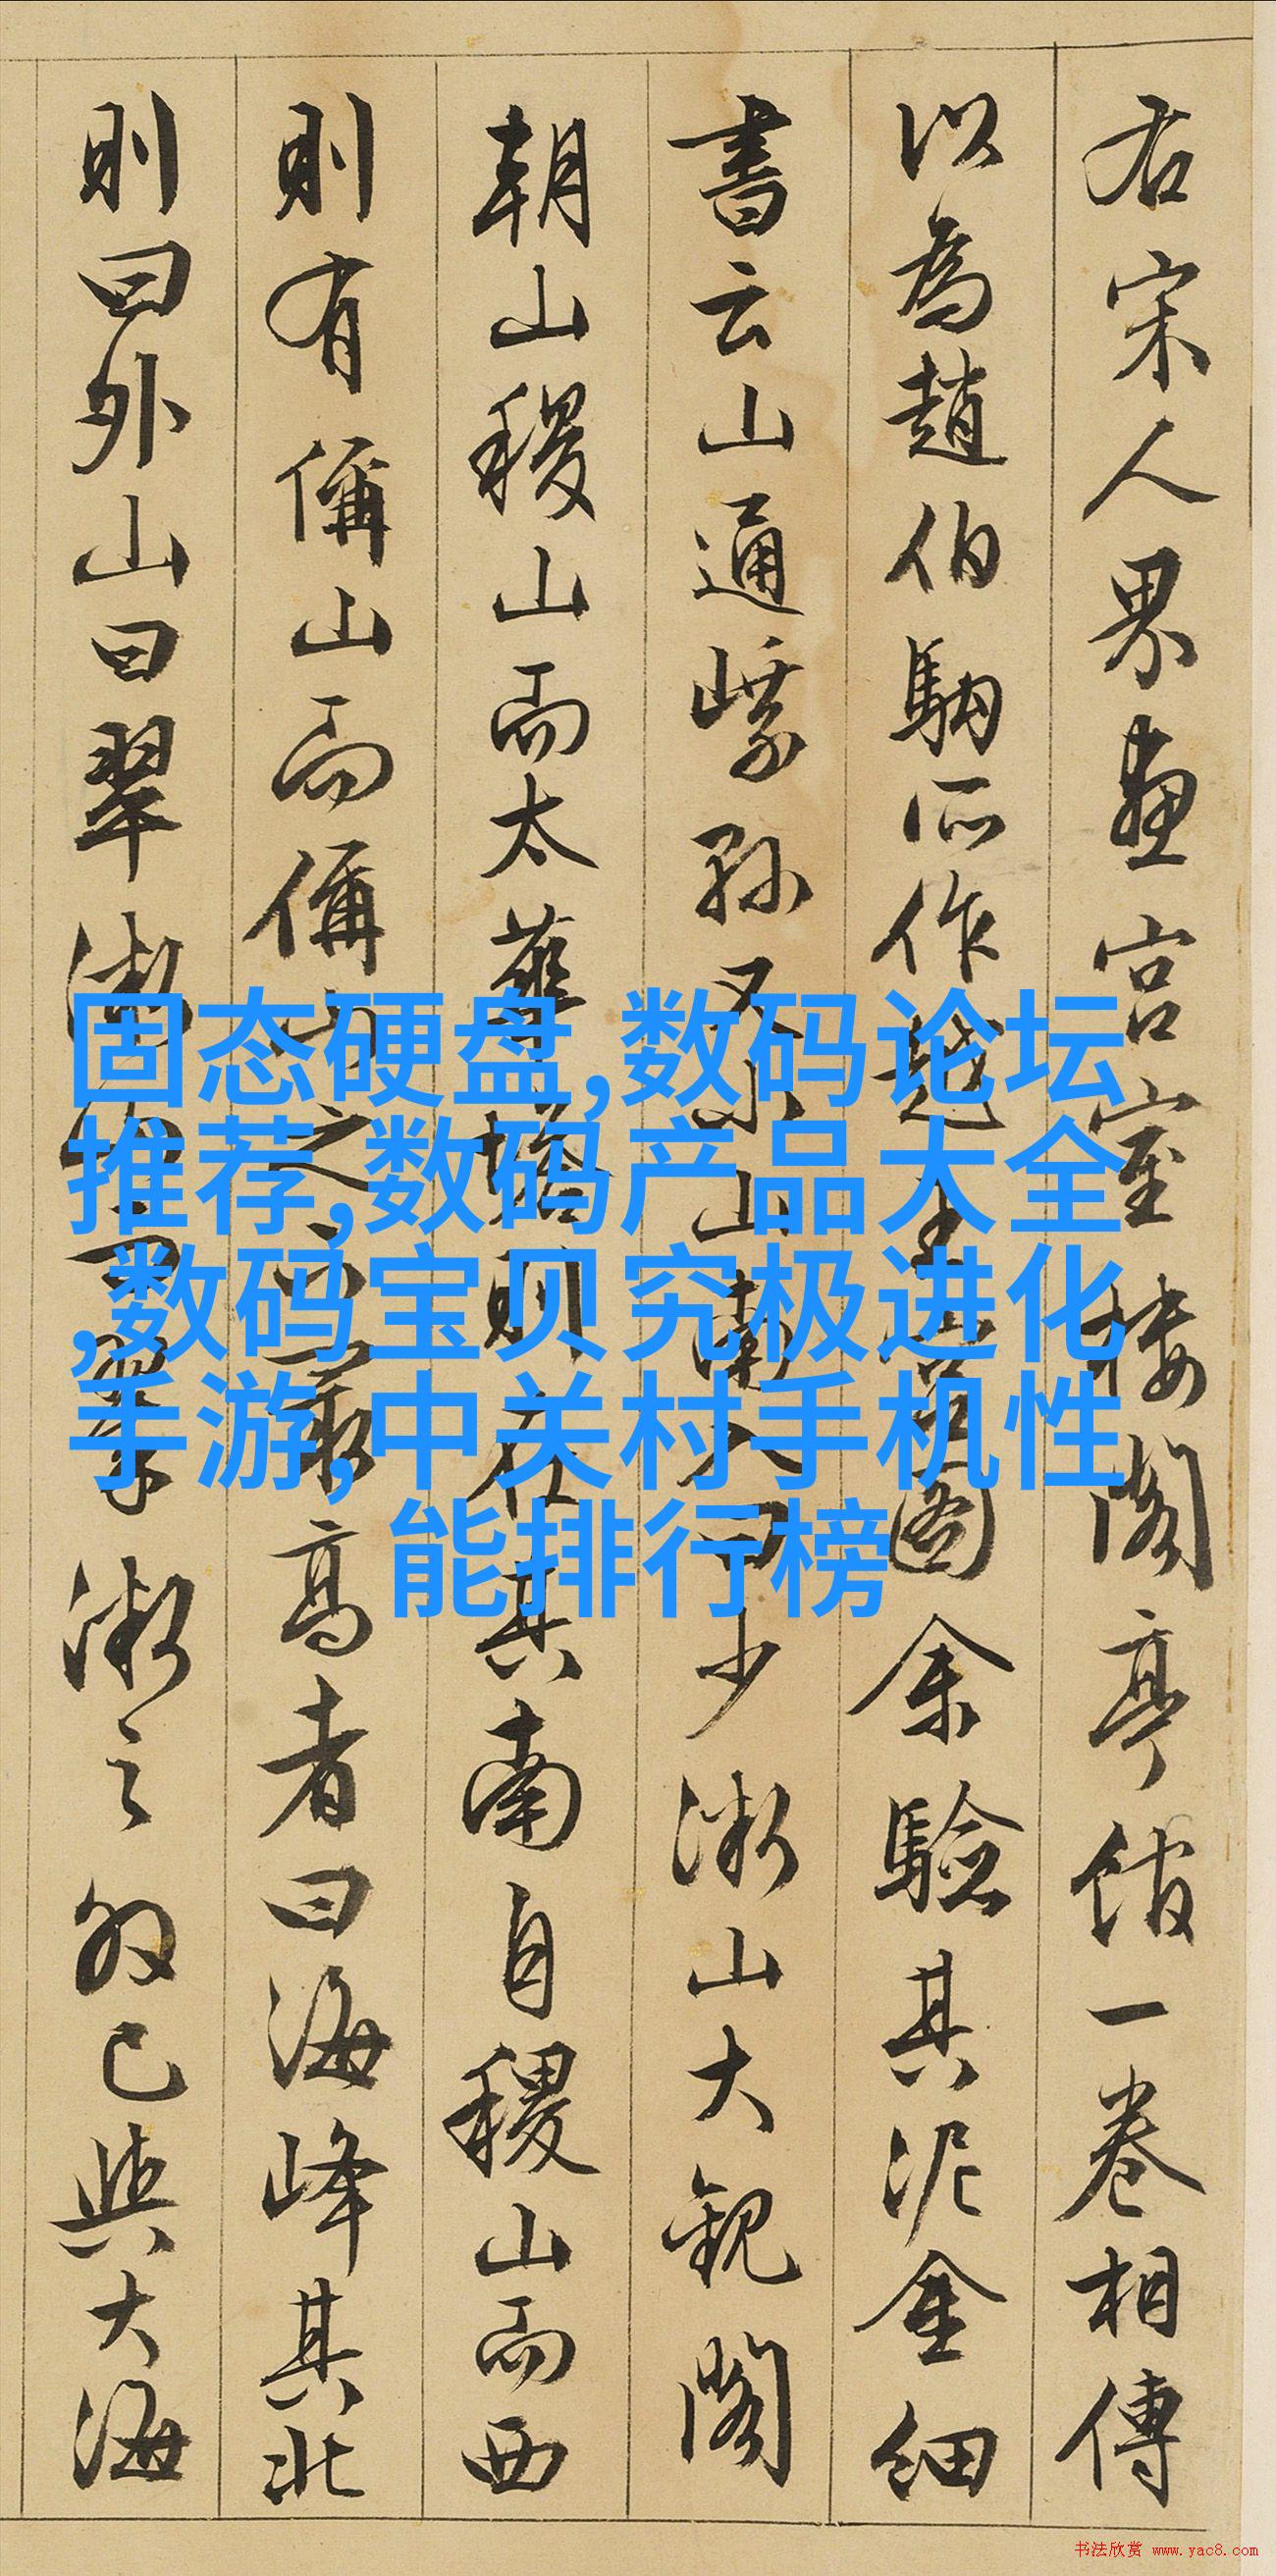 右宋人界畫宮室樓閣亭館一卷相傳
以為趙伯駒所作越王宮圖余驗其泥金細
書云山通
又小山南入曰少微山大觀閣
朝山稷山而太
塔則在其南自稷山而西
則有偁山而偁山之
最高者曰海峰其北
則曰外山曰翠微
微之外已與大海
固态硬盘,数码论坛
推荐,数码产品大全
,数码宝贝究极进化
手游,中关村手机性
能排行榜
书法欣赏 www.yac8.com